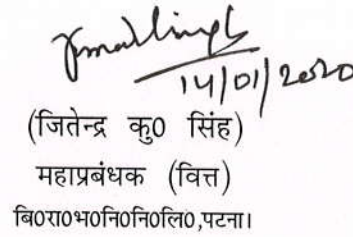 14/01/2020
(जितेन्द्र कु0 सिंह)
महाप्रबंधक (वित्त)
बि0रा0भ0नि0नि0लि0,पटना।